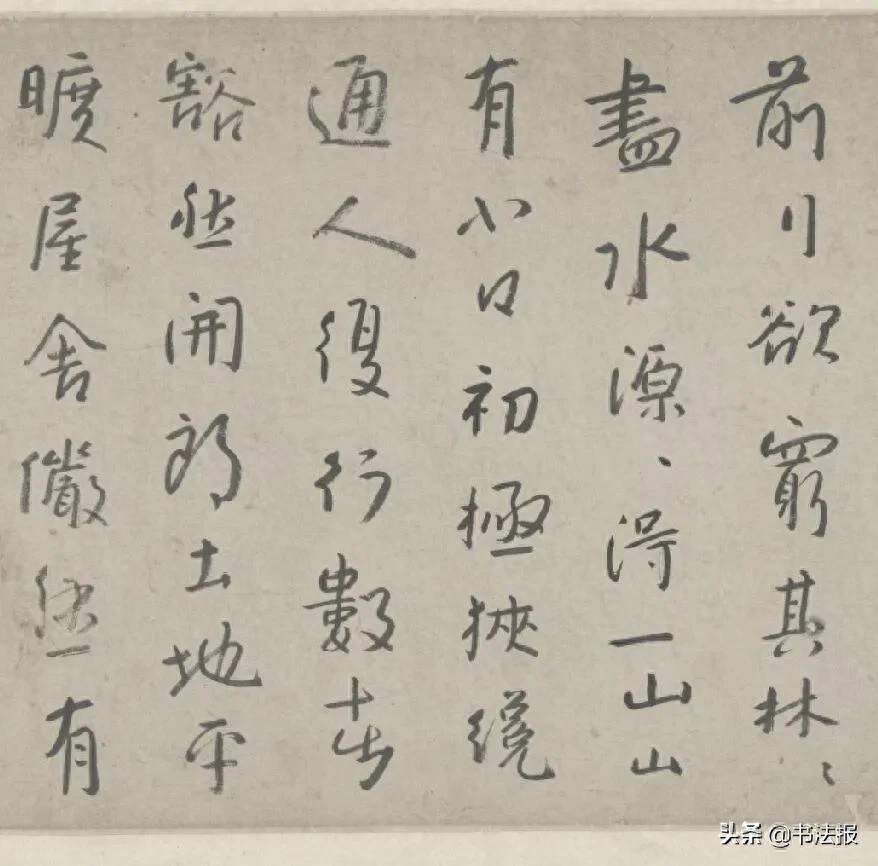 前行欲窮其林、、
盡水源、得一山山
有小口初極狹纔
通人復行數十步
豁然開朗土地平
曠屋舍儼然有
头条 @书法报